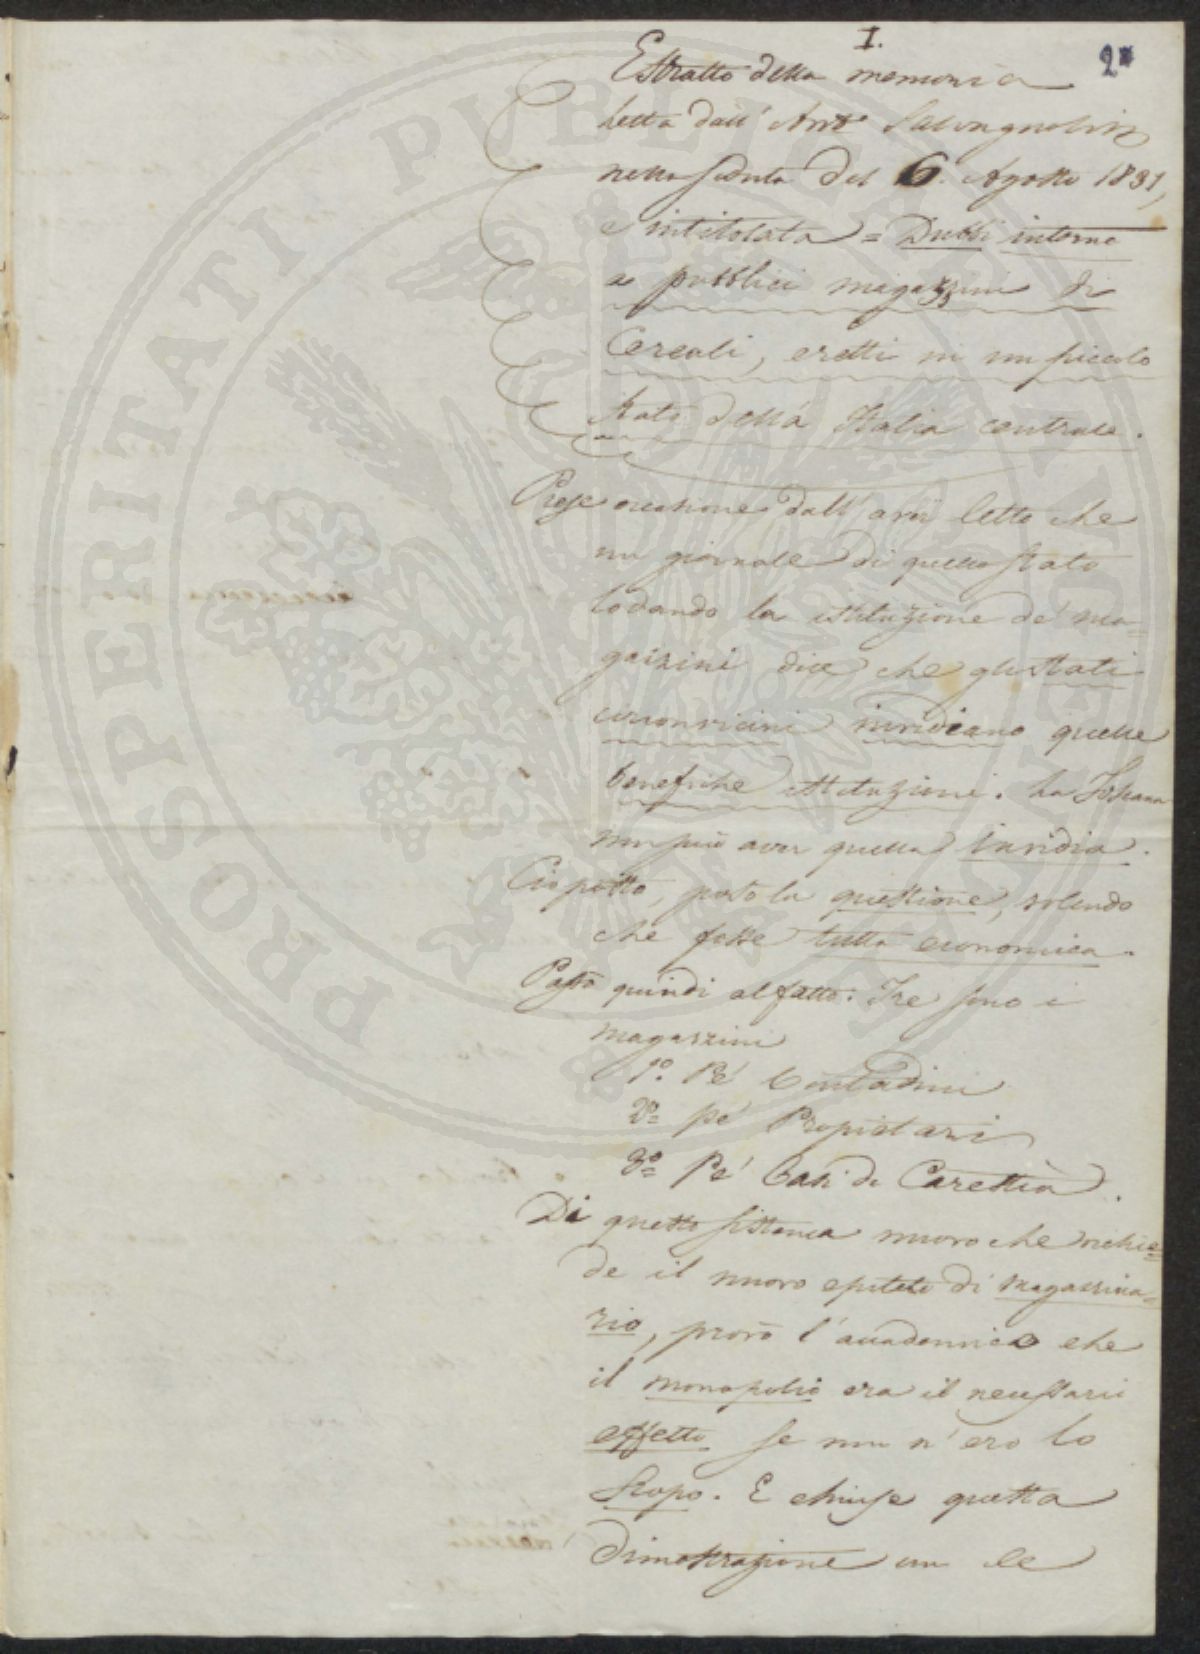 I.
2
Estratto della memoria
Letta dall' Avv.
nella seduta del 6. Agosto 1831,
e intitolata = Dubbi intorno
a pubblici magazzini di
Cereali, eretti in un piccolo
stato della Italia centrale.
Prese occasione dall' aver letto che
un giornale di quello stato
lodando la istituzione de' ma=
gazzini dice che gli stati
circonvicini invidiano quelle
benefiche istituzioni. La Toscana
non può aver quella invidia.
Ciò posto, pose la questione, volendo
che fosse tutta economica.
Passò quindi al fatto. Tre sono i
magazzini
1.º Pe' Contadini
2º pe' Propietari
3º Pe' Casi di Carestia.
Di questo sistema nuovo che richie=
de il nuovo epiteto di magazzina=
rio, provò l'accademico che
il monopolio era il necessario
effetto se non n'era lo
Scopo. E chiuse questa
dimostrazione con le
PROSPERITATI PUBLICAE